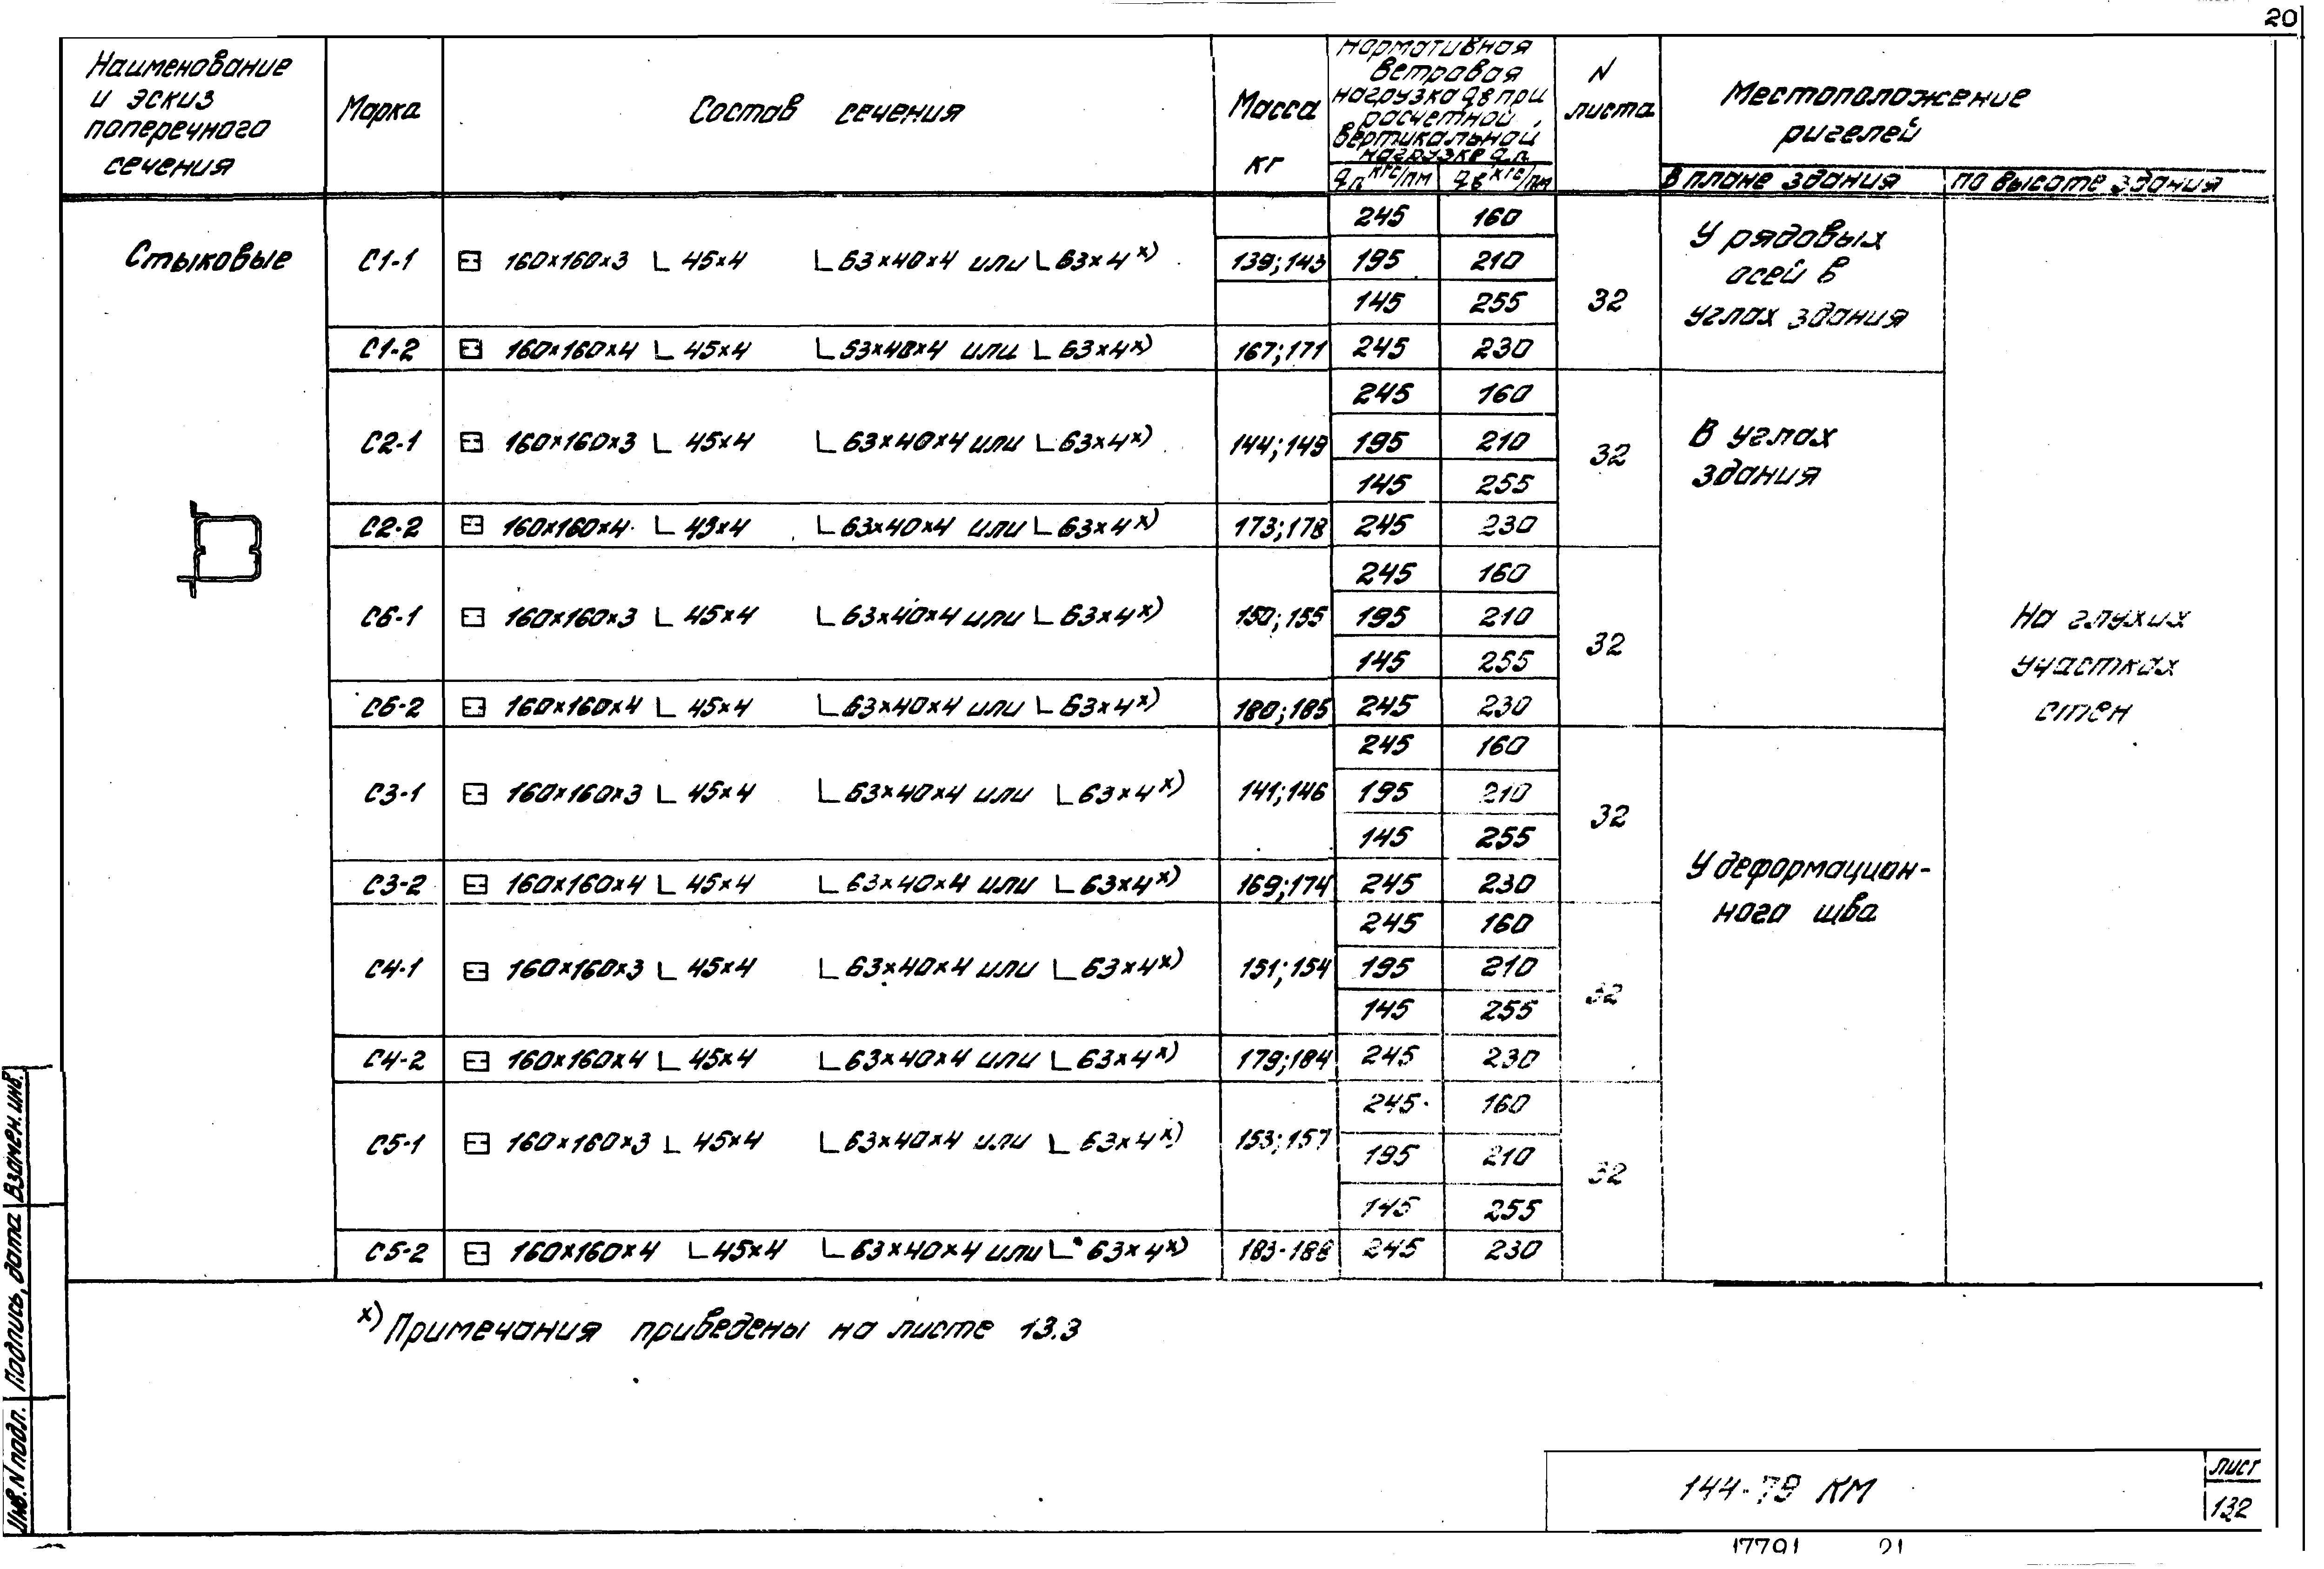 20
Наименование
и эскиз
поперечного
сечения
Марка
Состав сечения
Масса
кг
Нормативная
ветровая
нагрузка qв при
расчетной
вертикальной
нагрузке qп
qп кгс/пм qв кгс/пм
N
листа
Местоположение
ригелей
В плане здания по высоте здания
Стыковые
С1-1 160×160×3 L 45×4 L 63×40×4 или L 63×4 х) 139;143
245 160
195 210
145 255
32
У рядовых
осей в
углах здания
С1-2 160×160×4 L 45×4 L 53×40×4 или L 63×4 х) 167;171 245 230
С2-1 160×160×3 L 45×4 L 63×40×4 или L 63×4 х) 144;149
245 160
195 210
145 255
32
В углах
здания
С2-2 160×160×4 L 45×4 L 63×40×4 или L 63×4 х) 173;178 245 230
С6-1 160×160×3 L 45×4 L 63×40×4 или L 63×4 х) 150;155
245 160
195 210
145 255
32
С6-2 160×160×4 L 45×4 L 63×40×4 или L 63×4 х) 180;185 245 230
На глухих
участках
стен
С3-1 160×160×3 L 45×4 L 63×40×4 или L 63×4 х) 141;146
245 160
195 210
145 255
32
С3-2 160×160×4 L 45×4 L 63×40×4 или L 63×4 х) 169;174 245 230
У деформацион-
ного шва
С4-1 160×160×3 L 45×4 L 63×40×4 или L 63×4 х) 151;154
245 160
195 210
145 255
32
С4-2 160×160×4 L 45×4 L 63×40×4 или L 63×4 х) 179;184 245 230
С5-1 160×160×3 L 45×4 L 63×40×4 или L 63×4 х) 153;157
245 160
195 210
145 255
32
С5-2 160×160×4 L 45×4 L 63×40×4 или L 63×4 х) 183-188 245 230
х) Примечания приведены на листе 13.3
Инв. N подл. Подпись, дата Взамен. инв.
144-79 КМ
лист
13.2
17791 21